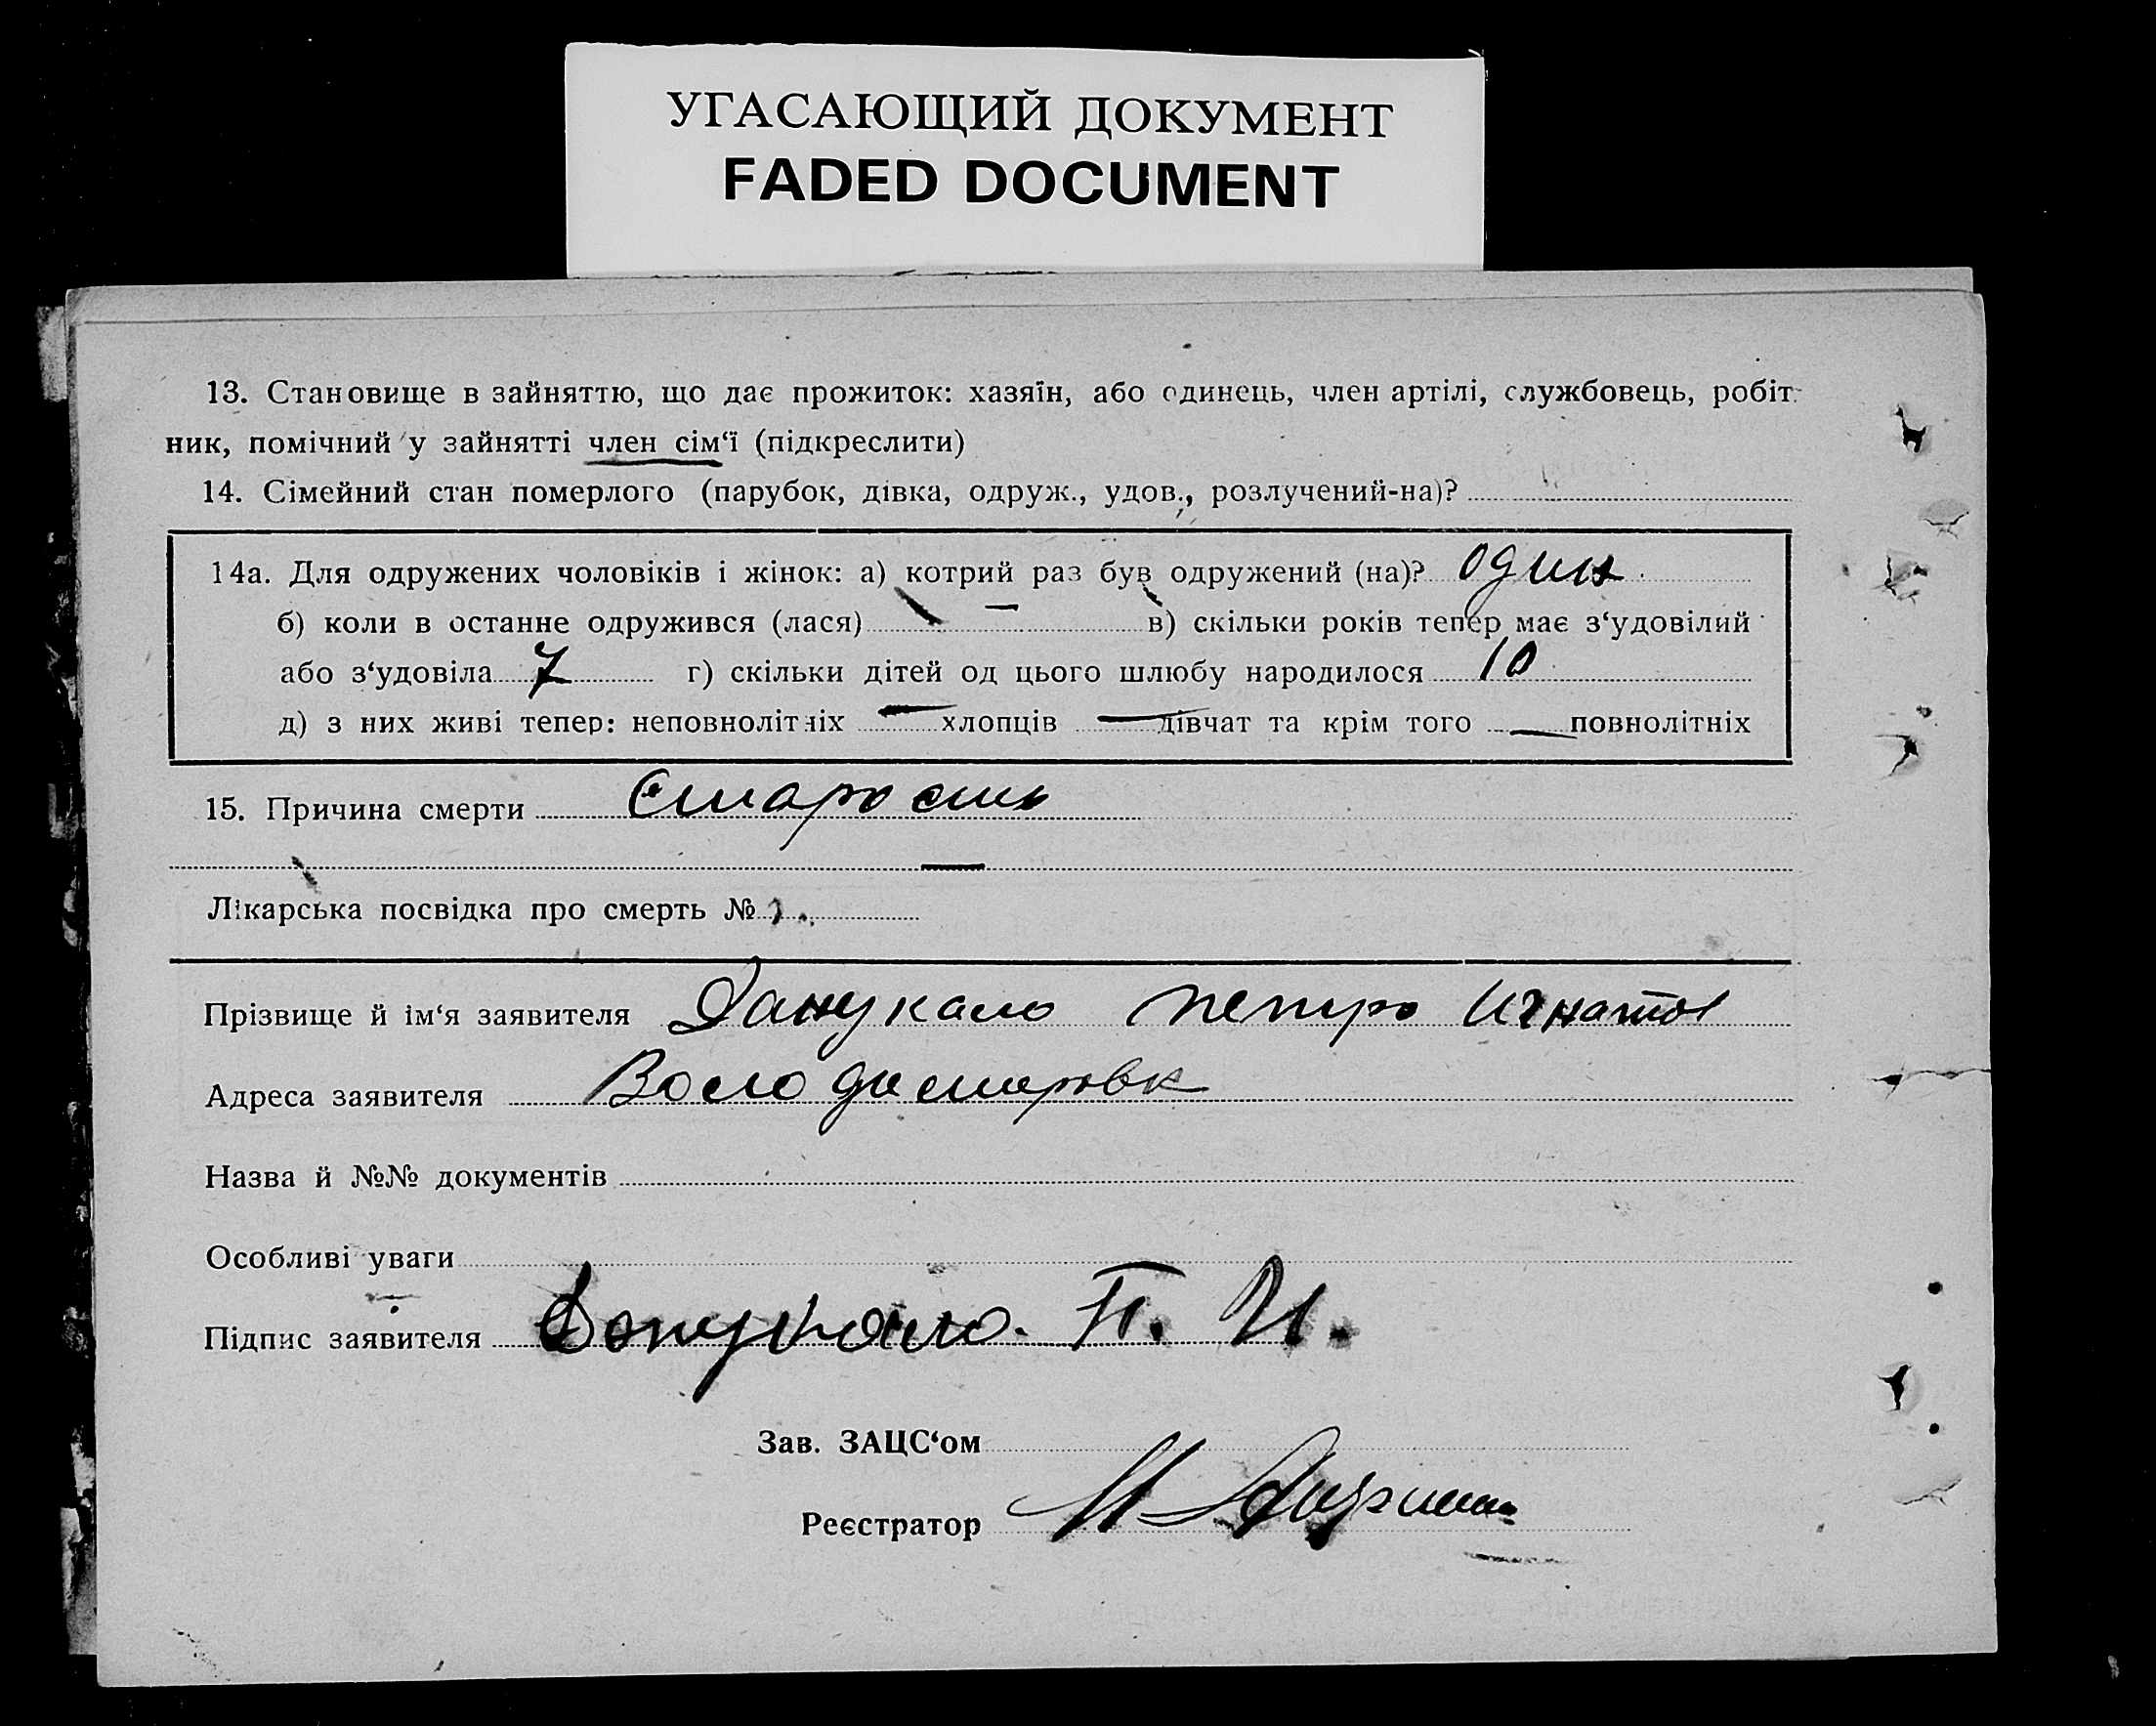 УГАСАЮЩИЙ ДОКУМЕНТ
FADED DOCUMENT
13. Становище в зайняттю, що дає прожиток: хазяїн, або одинець, член артілі, службовець, робіт-
ник, помічний у зайнятті член сім‘ї (підкреслити)
14. Сімейний стан померлого (парубок, дівка, одруж., удов., розлучений-на)?
14а. Для одружених чоловіків і жінок: а) котрий раз був одружений (на)? один
б) коли в останне одружився (лася) — в) скільки років тепер має з‘удовілий
або з‘удовіла 7 г) скільки дітей од цього шлюбу народилося 10
д) з них живі тепер: неповнолітніх — хлопців — дівчат та крім того — повнолітніх
15. Причина смерти Старость
—
Лікарська посвідка про смерть №
Прізвище й ім‘я заявителя Данукало Петро Игнатов
Адреса заявителя Володимеровк
Назва й №№ документів
Особливі уваги
Підпис заявителя Донукало. П. И.
Зав. ЗАЦС‘ом
Реєстратор